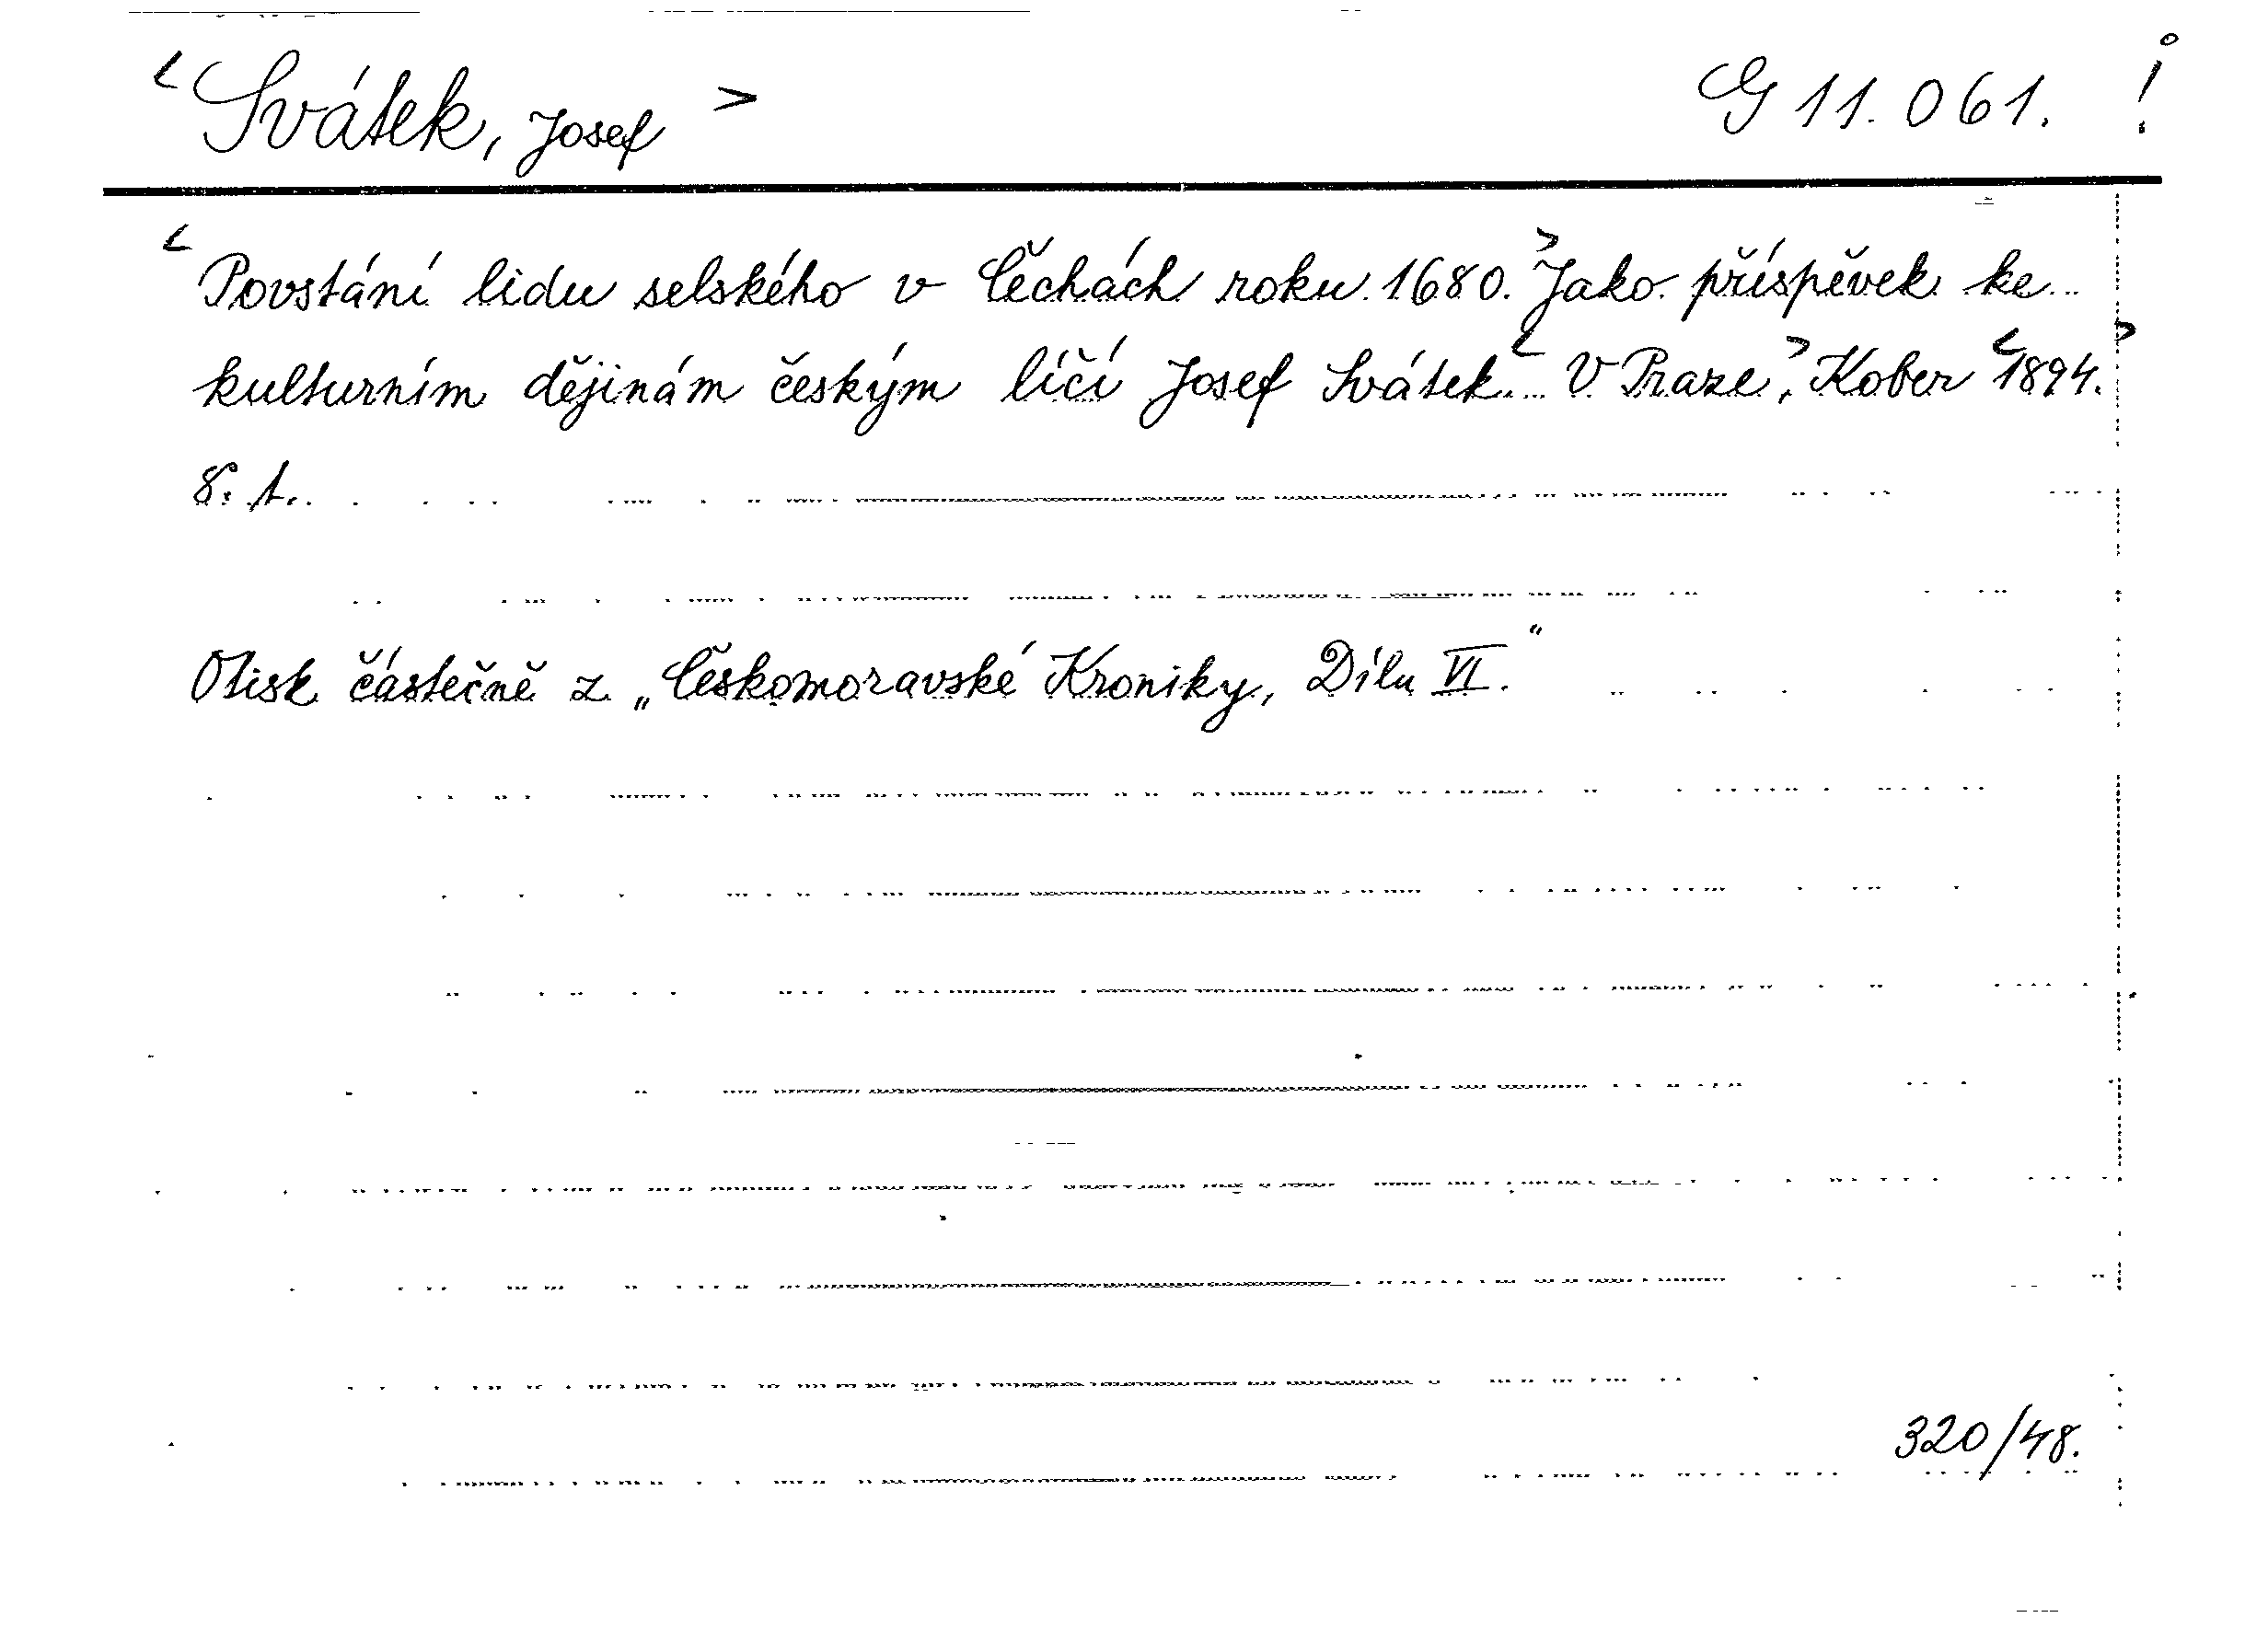 <Svátek, Josef> G 11.061. !
<Povstání lidu selského v Čechách roku 1680.> Jako příspěvek ke
kulturním dějinám českým líčí Josef Svátek. <V Praze>, Kober <1894.>
8. t.
Otisk částečně z „Českomoravské Kroniky, Dílu VI.“
320/48.